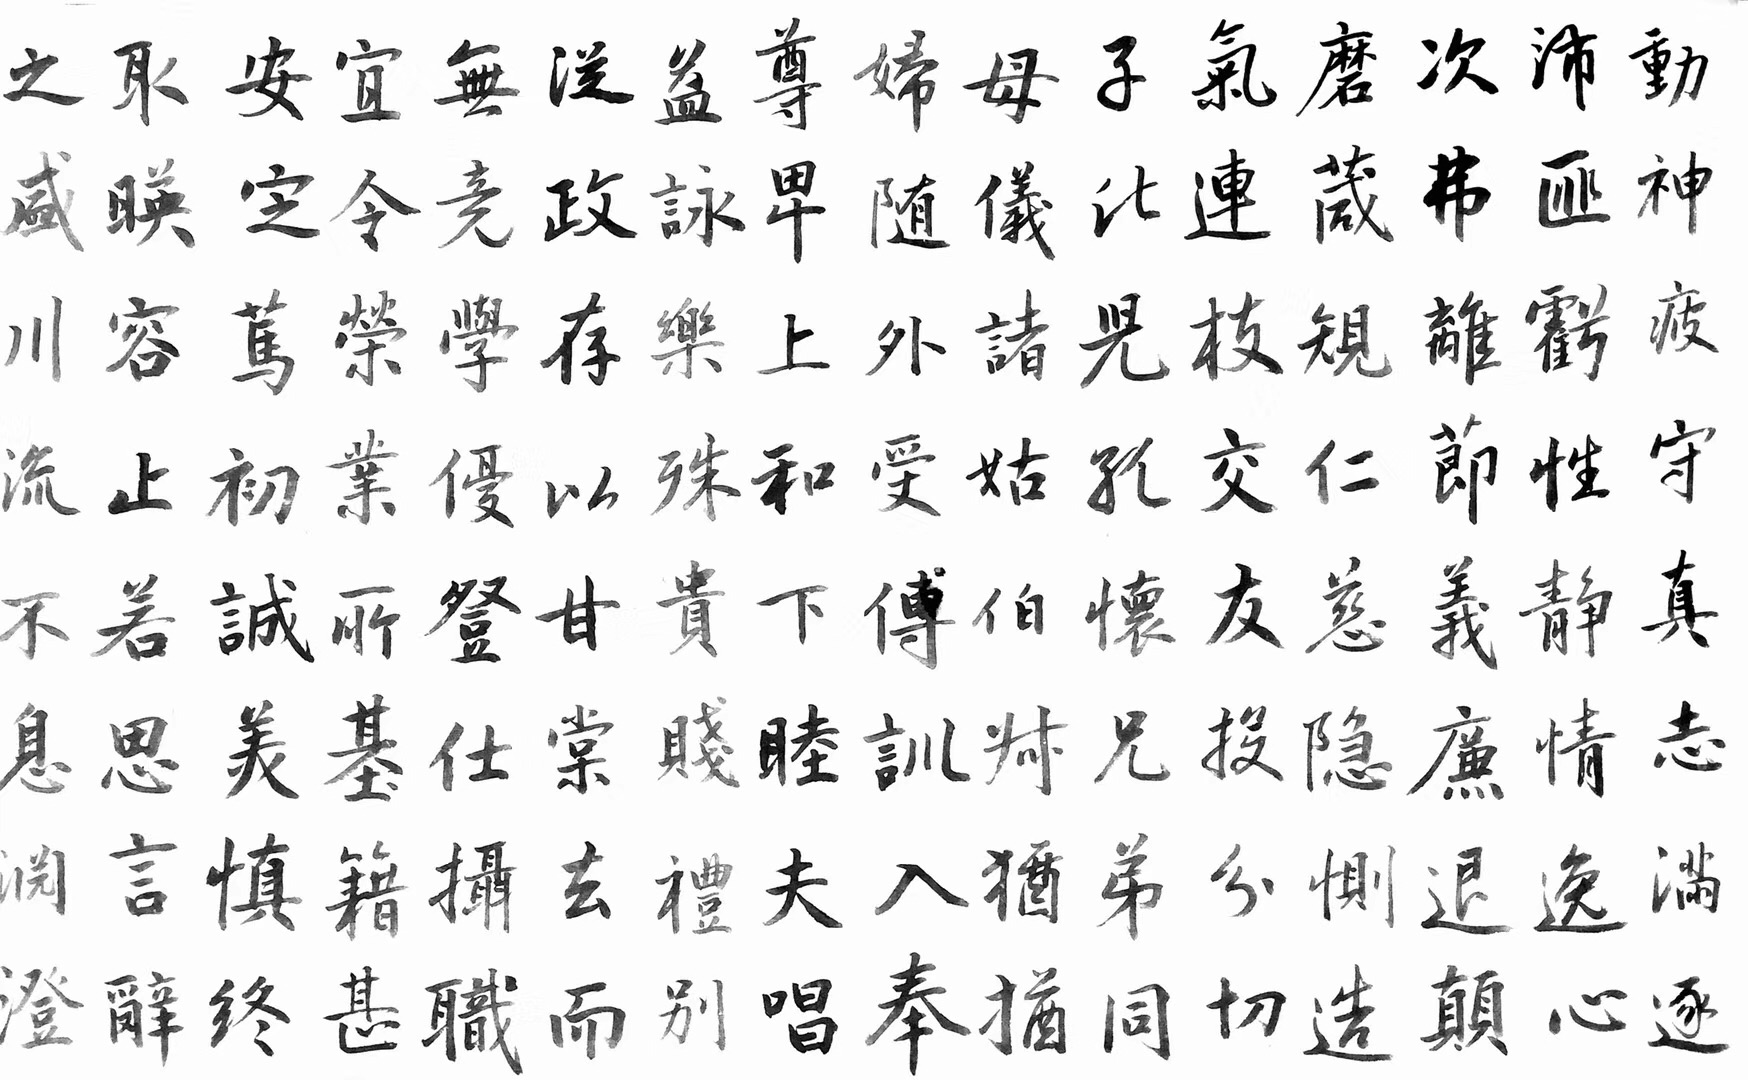 之盛川流不息淵澄
取暎容止若思言辭
安定篤初誠美慎終
宜令榮業所基籍甚
無竟學優登仕攝職
從政存以甘棠去而
益詠樂殊貴賤禮別
尊卑上和下睦夫唱
婦随外受傅訓入奉
母儀諸姑伯叔猶猶
子比兒孔懷兄弟同
氣連枝交友投分切
磨箴規仁慈隐惻造
次弗離節義廉退顛
沛匪虧性静情逸心
動神疲守真志滿逐